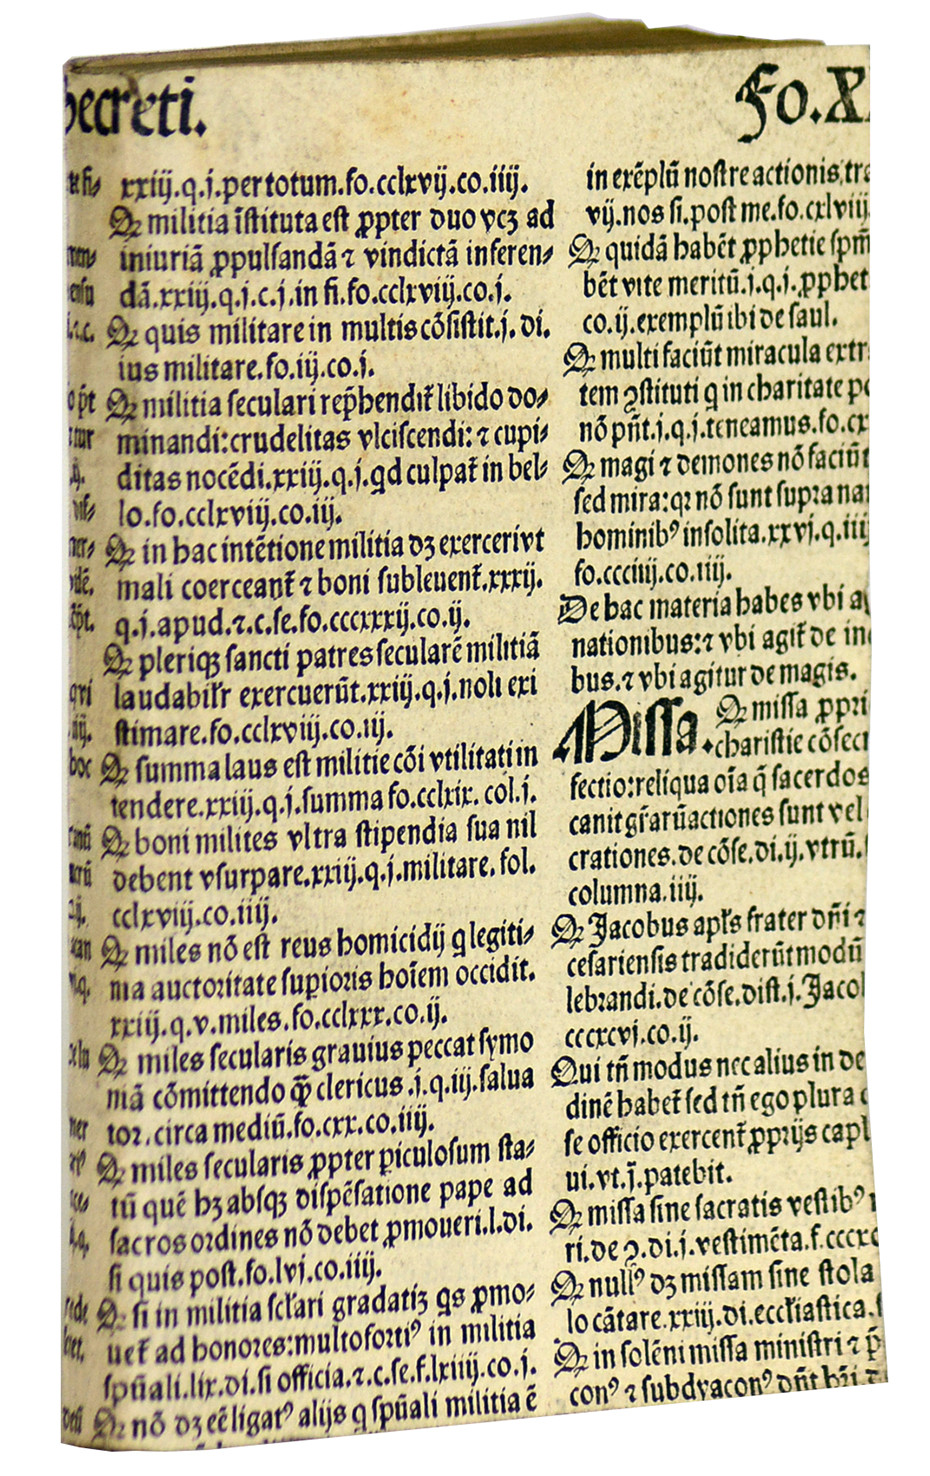 Decreti.
Fo.X
xxiij.q.j.per totum.fo.cclxvij.co.iiij.
Ꝙ militia īstituta est ꝓpter duo vcꝫ ad
iniuriā ꝓpulsandā ⁊ vindictā inferen⸗
dā.xxiij.q.j.c.j.in fi.fo.cclxviij.co.j.
Ꝙ quis militare in multis cōsistit.j.di.
ius militare.fo.iij.co.j.
Ꝙ militia seculari rep̄hendit̄ libido do⸗
minandi:crudelitas vlciscendi:⁊ cupi⸗
ditas nocēdi.xxiij.q.j.qd culpat̄ in bel⸗
lo.fo.cclxviij.co.iij.
Ꝙ in hac intētione militia dꝫ exerceri vt
mali coerceant̄ ⁊ boni subleuent̄.xxxij.
q.j.apud.⁊.c.se.fo.cccxxxij.co.ij.
Ꝙ pleriqꝫ sancti patres secularē militiā
laudabilr̄ exercuerūt.xxiij.q.j.noli exi
stimare.fo.cclxviij.co.iij.
Ꝙ summa laus est militie cōi vtilitati in
tendere.xxiij.q.j.summa fo.cclxix. col.j.
Ꝙ boni milites vltra stipendia sua nil
debent vsurpare.xxiij.q.j.militare. fol.
cclxviij.co.iiij.
Ꝙ miles nō est reus homicidij q legiti⸗
ma auctoritate suꝑioris hoīem occidit.
xxiij.q.v.miles.fo.cclxxx.co.ij.
Ꝙ miles secularis grauius peccat symo
niā cōmittendo qꝫ̄ clericus .j.q.iij.salua
tor.circa mediū.fo.cxx.co.iiij.
Ꝙ miles secularis ꝓpter ꝑiculosum sta⸗
tū quē hꝫ absqꝫ dispēsatione pape ad
sacros ordines nō debet ꝓmoueri.l.di.
si quis post.fo.lvj.co.iiij.
Ꝙ si in militia sclari gradatiꝫ qs ꝓmo⸗
uet̄ ad honores:multofortiꝰ in militia
spūali.lix.di.si officia.⁊.c.se.f.lxiiij.co.j.
Ꝙ nō dꝫ eē ligatꝰ alijs q spūali militia ē
in exēplū nostre actionis.tra
vij.nos si.post me.fo.cxlviij
Ꝙ quidā habēt ꝓphetie spm̄
bēt vite meritū.j.q.j.ꝓphet
co.ij.exemplū ibi de saul.
Ꝙ multi faciūt miracula extr
tem ꝯstituti q in charitate
nō pn̄t.j.q.j.teneamus.fo.cx
Ꝙ magi ⁊ demones nō faciūt
sed mira:qꝛ nō sunt supra na
hominibꝰ insolita.xxvj.q.iij
fo.ccciiij.co.iiij.
De hac materia habes vbi
nationibus:⁊ vbi agit̄ de in
bus.⁊ vbi agitur de magis.
Missa. Ꝙ missa ꝓpri
charistie cōsecr
fectio:reliqua oīa q̄ sacerdos
canit grār̄ū actiones sunt vel
crationes.de cōse.di.ij.vtrū.
columna.iiij.
Ꝙ Jacobus apl̄s frater dn̄i ⁊
cesariensis tradiderūt modū
lebrandi.de cōse.dist.j.Jacob
cccxcvj.co.ij.
Qui tn̄ modus nec alius in de
dinē habet̄ sed tn̄ ego plura
se officio exercent̄ ꝓprijs capl
ui.vt.j̄.patebit.
Ꝙ missa sine sacratis vestibꝰ
ri.de ꝯ.di.j.vestimēta.f.cccxc
Ꝙ nullꝰ dꝫ missam sine stola
lo cātare.xxiij.di.eccl̄iastica.
Ꝙ in solēni missa ministri ⁊
conꝰ ⁊ subdyaconꝰ dn̄t